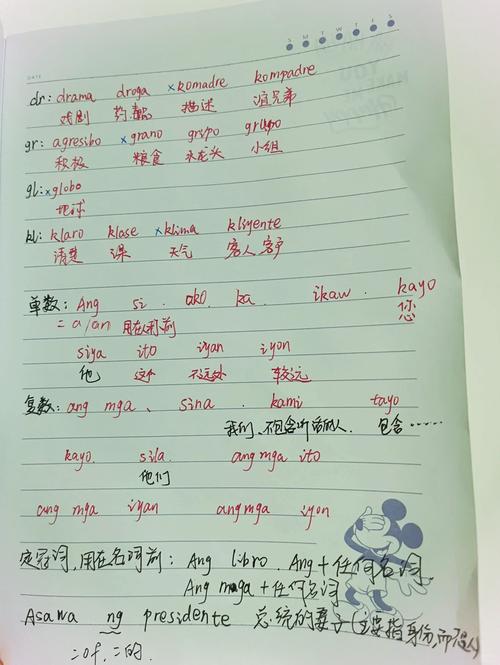 S M T W T F S
DATE
dr: drama droga ×komadre kompadre
戏剧 药.毒品 描述 道兄弟
gr: agresibo ×grano gripo grupo
积极 粮食 水龙头 小组
gl: ×globo
地球
kl: klaro klase ×klima kliyente
清楚 课 天气 客人 客户
单数: Ang si . ako . ka . ikaw . kayo
= a/an 用在利前 您
siya ito iyan iyon
他 这个 不远处 较远
复数: ang mga 、 sina . kami tayo
我们、不包含听话的人. 包含······
kayo. sila. ang mga ito
他们
ang mga iyan ang mga iyon
定冠词,用在名词前: Ang libro . Ang + 任何名词
Ang mga + 任何名词
Asawa ng presidente 总统的妻子 (主要指身份,而
=of. =的.